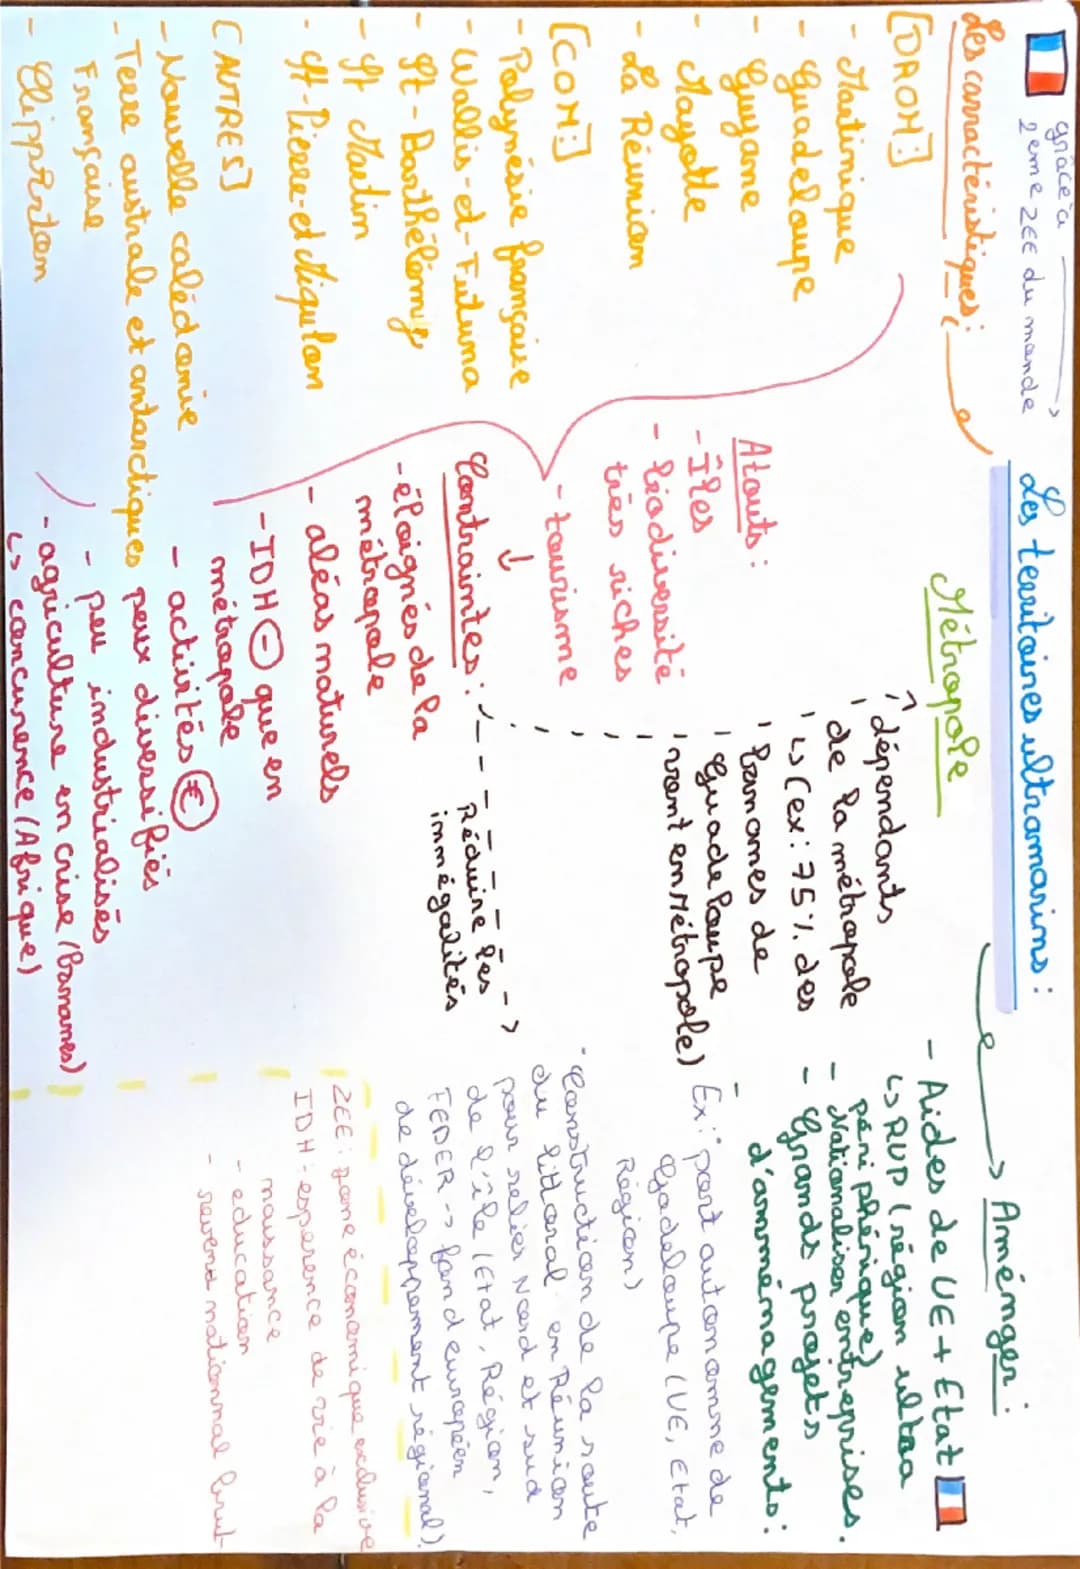 Les territoires ultramarins :
grâce à
2eme ZEE du monde
Les carractéristiques :
[DROM :]
- Martinique
- Guadeloupe
- Guyane
- Mayotte
- La Réunion
[COM :]
- Polynésie française
- Wallis-et-Futuna
- St-Barthélémy
- St Martin
- St-Pierre-et-Miquelon
[AUTRES]
- Nouvelle calédonie
- Terre australe et antarctiques
Française
- Clipperton
Atouts :
- Îles
- biodiversité
très riches
- tourisme
Contraintes :
- éloignés de la
métropole
- aléas naturels
- IDH ⊖ que en
métropole
- activités €
peux diversifiés
- peu industrialisés
- agriculture en crise (Bananes)
↳ concurence (Afrique)
Métropole
dépendants
de la métropole
↳ (ex : 75% des
bananes de
Guadeloupe
vont en Métropole)
Réduire les
innégalités
Aménager :
- Aides de UE + Etat
↳ RUP (région ultra
périphérique)
- Nationaliser entreprises.
- Grands projets
d'amménagements :
Ex : port autonomme de
Gadeloupe (UE, Etat,
Région)
- Construction de la route
du littoral en Réunion
pour relier Nord et sud
de l'île (Etat, Région,
FEDER -> fond européen
de développement régional)
ZEE : zone économique exclusive
IDH : esperence de vie à la
naissance
- education
- revenu nationnal brut